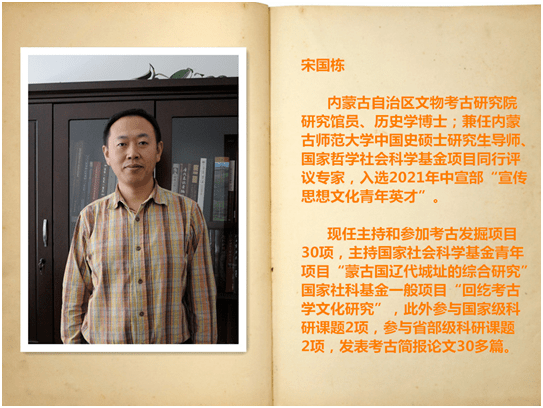 宋国栋
内蒙古自治区文物考古研究院
研究馆员、历史学博士；兼任内蒙
古师范大学中国史硕士研究生导师、
国家哲学社会科学基金项目同行评
议专家，入选2021年中宣部“宣传
思想文化青年英才”。
现任主持和参加考古发掘项目
30项，主持国家社会科学基金青年
项目“蒙古国辽代城址的综合研究”
国家社科基金一般项目“回纥考古
学文化研究”，此外参与国家级科
研课题2项，参与省部级科研课题
2项，发表考古简报论文30多篇。